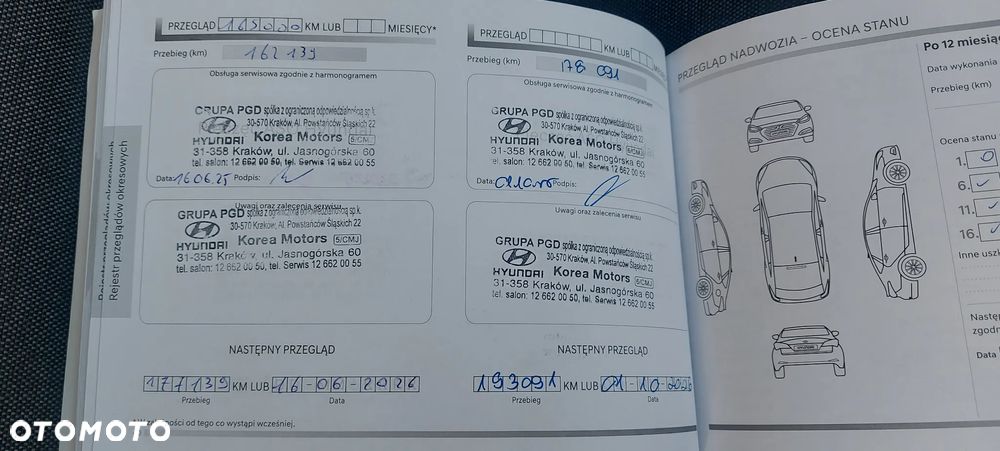 PRZEGLĄD 165000 KM LUB MIESIĘCY*
Przebieg (km) 162 139
Obsługa serwisowa zgodnie z harmonogramem
GRUPA PGD spółka z ograniczoną odpowiedzialnością sp.k.
30-570 Kraków, Al. Powstańców Śląskich 22
HYUNDAI Korea Motors 5/CMJ
31-358 Kraków, ul. Jasnogórska 60
tel. salon: 12 662 00 50, tel. Serwis 12 662 00 55
Data: 16.06.25 Podpis:
Uwagi oraz zalecenia serwisu
GRUPA PGD spółka z ograniczoną odpowiedzialnością sp.k.
30-570 Kraków, Al. Powstańców Śląskich 22
HYUNDAI Korea Motors 5/CMJ
31-358 Kraków, ul. Jasnogórska 60
tel. salon: 12 662 00 50, tel. Serwis 12 662 00 55
NASTĘPNY PRZEGLĄD
177139 KM LUB 16-06-2026
Przebieg Data
* W zależności od tego co wystąpi wcześniej.
Rejestr przeglądów okresowych
Rejestr przeglądów okresowych
PRZEGLĄD KM LUB MIESIĘCY
Przebieg (km) 178 091
Obsługa serwisowa zgodnie z harmonogramem
GRUPA PGD spółka z ograniczoną odpowiedzialnością sp.k.
30-570 Kraków, Al. Powstańców Śląskich 22
HYUNDAI Korea Motors 5/CMJ
31-358 Kraków, ul. Jasnogórska 60
tel. salon: 12 662 00 50, tel. Serwis 12 662 00 55
Data: Podpis:
Uwagi oraz zalecenia serwisu
GRUPA PGD spółka z ograniczoną odpowiedzialnością sp.k.
30-570 Kraków, Al. Powstańców Śląskich 22
HYUNDAI Korea Motors 5/CMJ
31-358 Kraków, ul. Jasnogórska 60
tel. salon: 12 662 00 50, tel. Serwis 12 662 00 55
NASTĘPNY PRZEGLĄD
193091 KM LUB 01-10-2026
Przebieg Data
PRZEGLĄD NADWOZIA – OCENA STANU
Po 12 miesiąc
Data wykonania
Przebieg (km)
Ocena stanu
1.
6.
11.
16.
Inne uszk
Następ
zgodn
Data
OTOMOTO